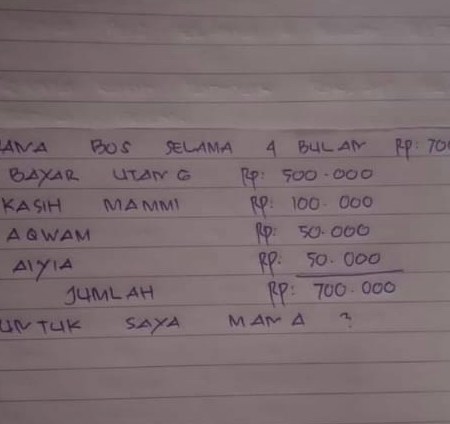 ANA BOS SELAMA 4 BULAN RP: 700
BAYAR UTANG RP: 500.000
KASIH MAMMI RP: 100.000
AQWAM RP: 50.000
AIYIA RP: 50.000
JUMLAH RP: 700.000
UNTUK SAYA MANA ?